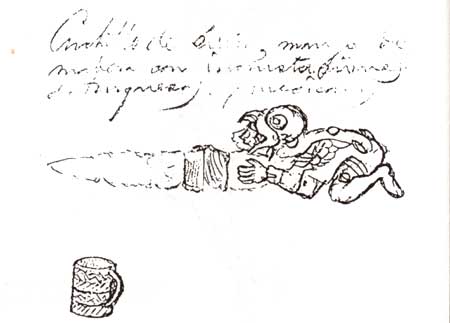 Cuchillo de silex, mango de
madera con
de turquesas,